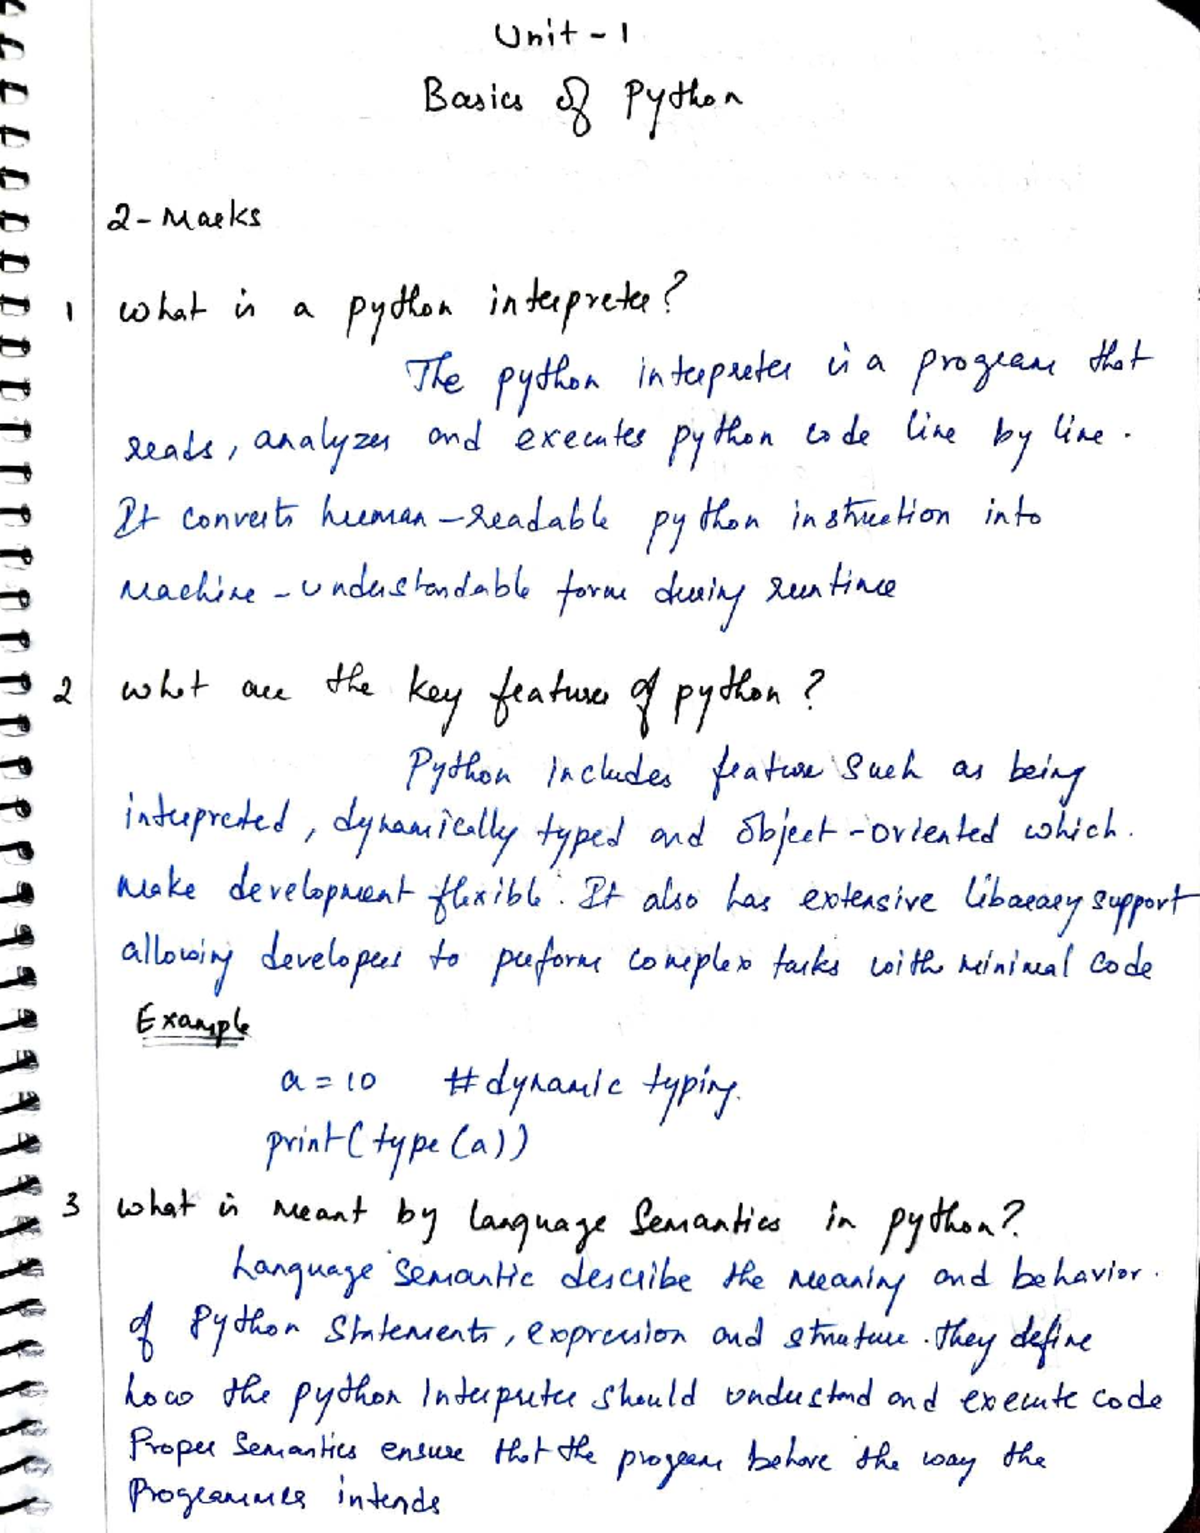 Unit - 1
Basics of Python
2 - Marks
1 What is a python interpreter?
The python interpreter is a program that
reads, analyzes and executes python code line by line.
It converts human-readable python instruction into
machine - understandable form during runtime
2 what are the key features of python?
Python includes feature such as being
interpreted, dynamically typed and object-oriented which.
make development flexible. It also has extensive libaraey support
allowing developers to perform complex tasks with minimal code
Example
a = 10 # dynamic typing.
print(type(a))
3 what is meant by language Semantics in python?
Language Semantic describe the meaning and behavior.
of Python Statements, expression and struture. they define
how the python Interpreter should understand and execute code
Proper Semantics ensure that the program behave the way the
Programmer intends